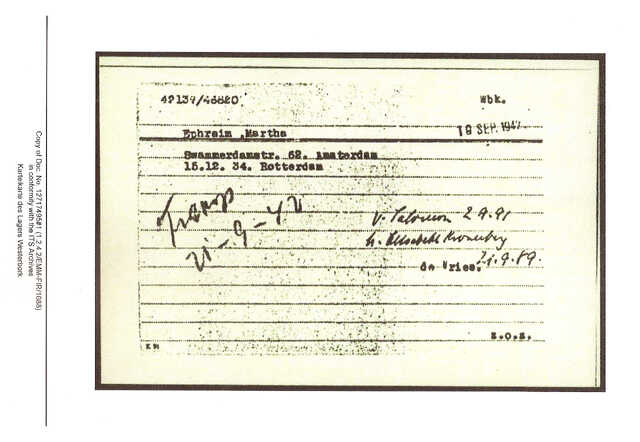 49139/46820 Wbk.
19 SEP. 1942
Ephraim ,Martha
Swammerdamstr. 62. Amsterdam
15.12. 34. Rotterdam
Transp
21-9-42
v. Salomon 2 9.91
Elisabeth Kronenberg
de Vries. 21.9.89.
Z.O.Z.
K 91
Copy of Doc. No. 12717495#1 (1.2.4.2/EMM-FIR/1088)
in conformity with the ITS Archives
Karteikarte des Lagers Westerbork